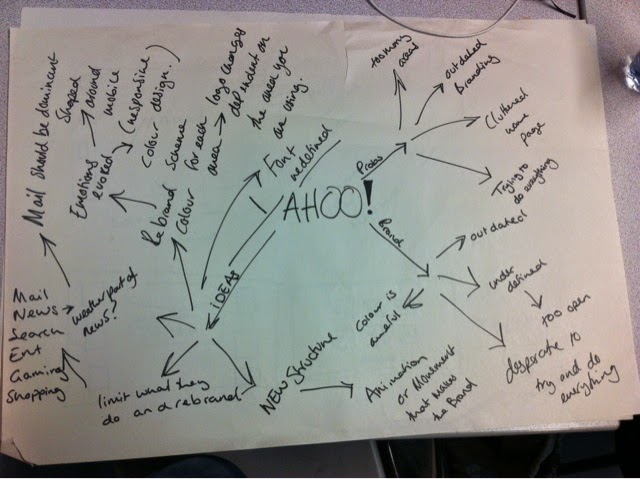 Mail should be dominent
Emotions
evoked
Shaped
around
mobile
(responsive
colour design..)
Rebrand
Colour
scheme
for each
area
logo changes
dependent on
the area you
are using.
Font
redefined
YAHOO!
Probs
too many
areas
outdated
Branding
Cluttered
home
page
Trying to
do everything
Brand
outdated
under
defined
too open
desperate to
try and do
everything
Colour is
awful
IDEAS
NEW Structure
Animation
or Movement
that makes
the Brand
limit what they
do and rebrand
Mail
News
Search
Ent
Gaming
Shopping
weather part of
news?